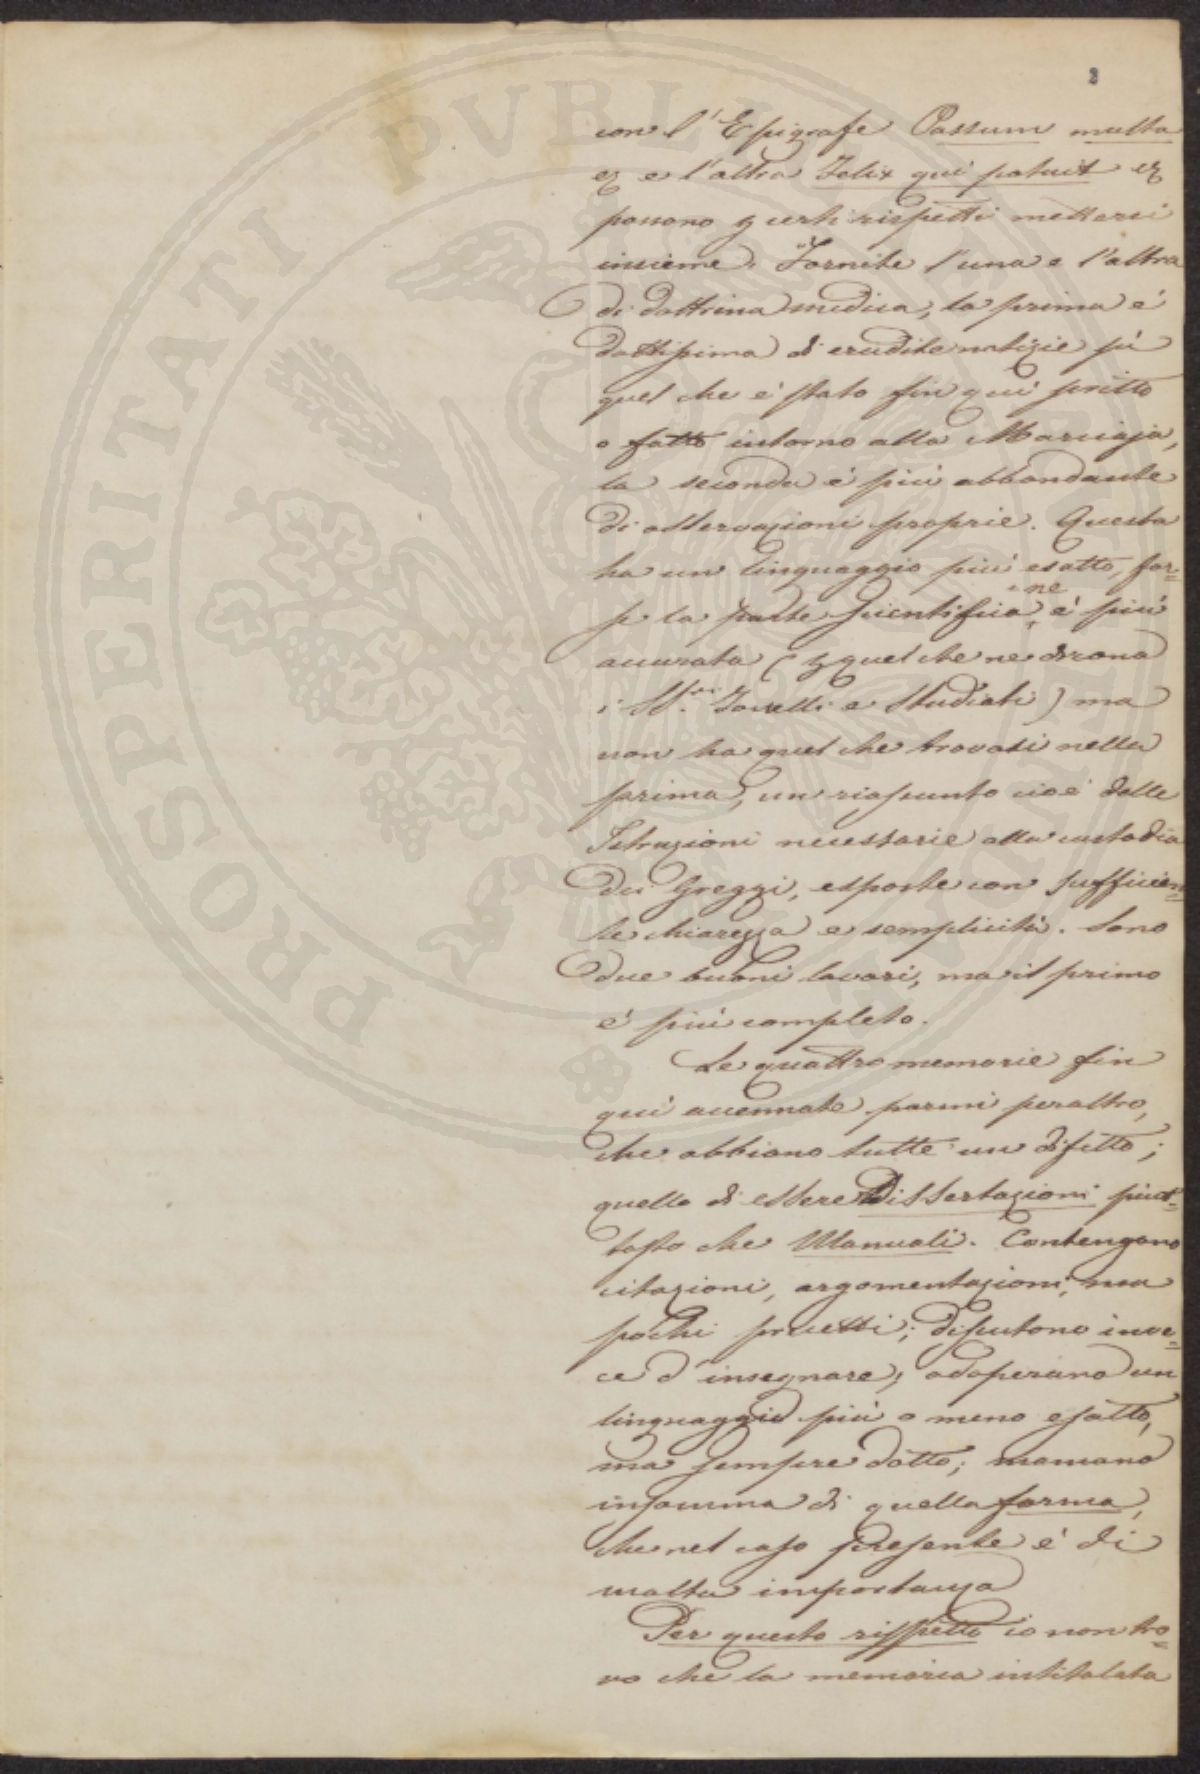 3
con l'Epigrafe Possum multa
&c e l'altra Felix qui potuit &c
possono p certi rispetti mettersi
insieme. Fornite l'una e l'altra
di dottrina medica, la prima è
dottissima di erudite notizie su
quel che è stato fin quì scritto
o fatto intorno alla Marciaja,
la seconda è più abbondante
di osservazioni proprie. Questa
ha un linguaggio più esatto, for=
se la parte scientifica ne è più
accurata (p quel che ne dirano
i SS.ri e Studiati) ma
non ha quel che trovasi nella
prima, un riassunto cioè delle
Istruzioni necessarie alla custodia
dei Greggi, esposte con sufficien=
te chiarezza e semplicità. Sono
due buoni lavori, ma il primo
è più completo.
Le quattro memorie fin
quì accennate parmi peraltro,
che abbiano tutte un difetto;
quello di essere Dissertazioni piut=
tosto che Manuali. Contengono
citazioni, argomentazioni, ma
pochi precetti; disputono inve=
ce d'insegnare; adoperano un
linguaggio più o meno esatto,
ma sempre dotto; mancano
insomma di quella forma,
che nel caso presente è di
molta importanza
Per questo rispetto io non tro=
vo che la memoria intitolata
PROSPERITATI PUBLICAE